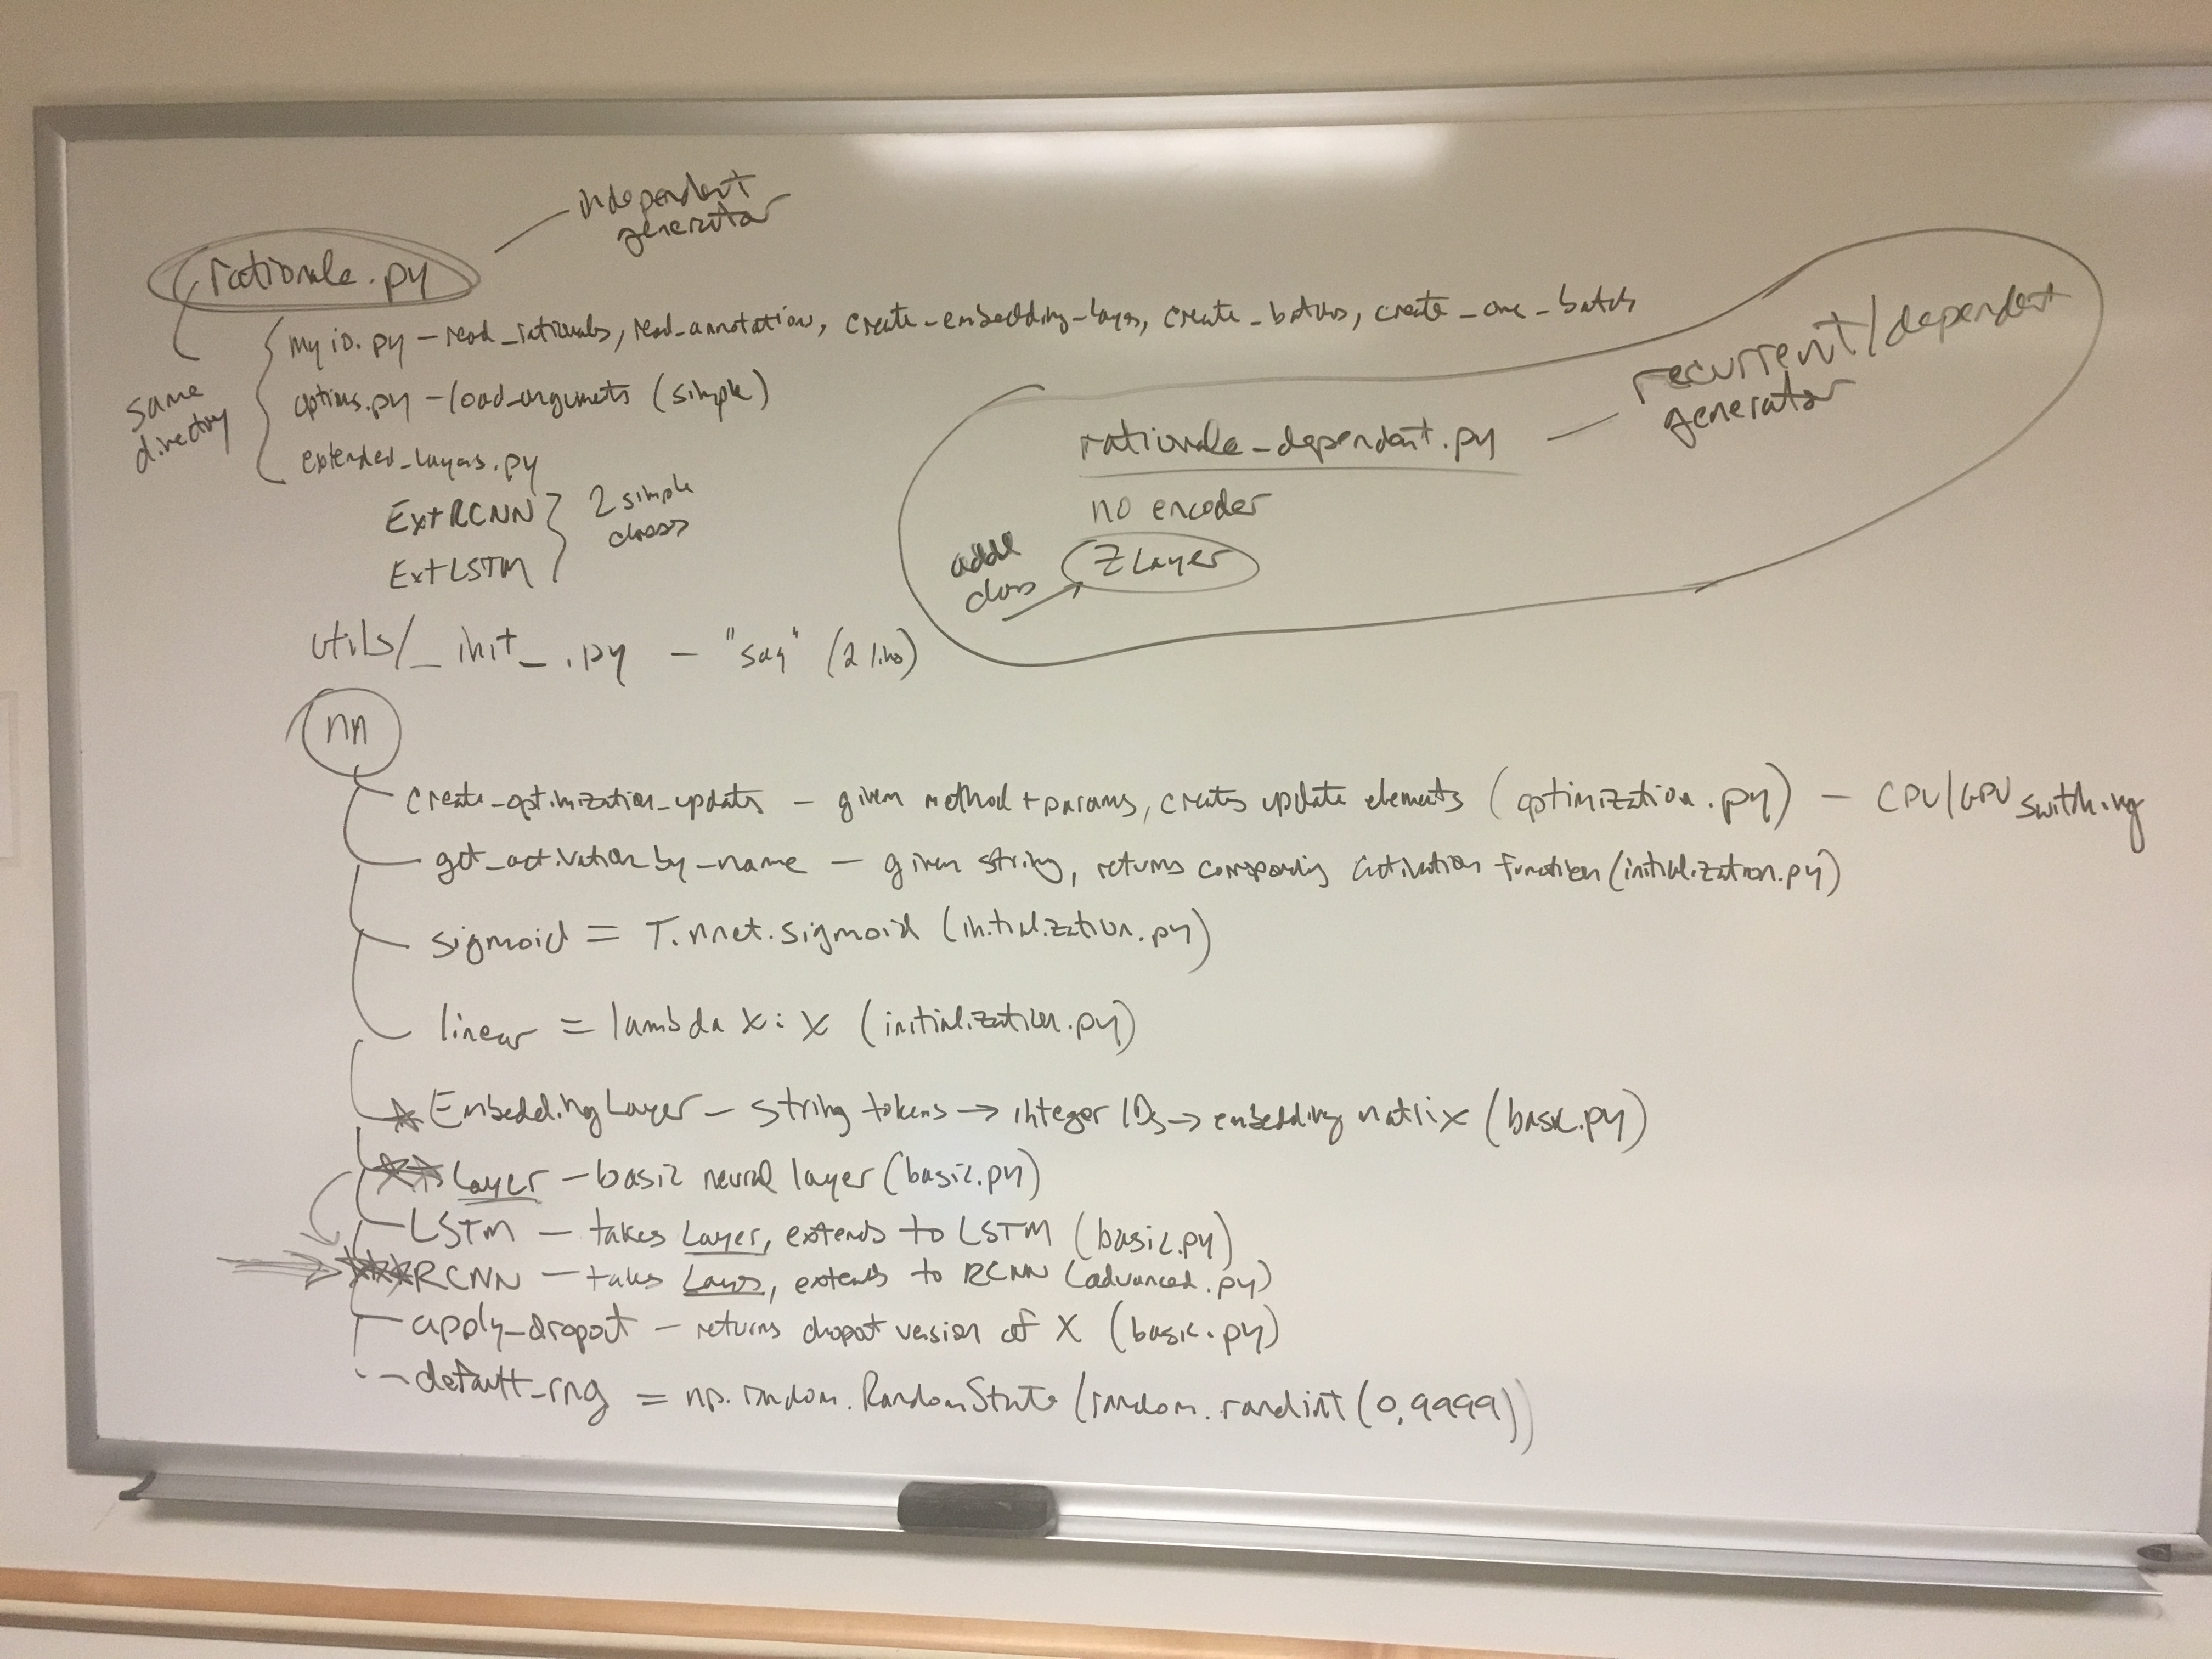 independent
generator
rationale.py
same
directory
myio.py – read_rationales, read_annotations, create_embedding_layer, create_batches, create_one_batch
options.py – load_arguments (simple)
extended_layers.py
ExtRCNN
ExtLSTM
2 simple
classes
rationale_dependent.py
recurrent/dependent
generator
no encoder
addl
class
ZLayer
utils/_init_.py – "say" (2 lines)
nn
create_optimization_updates – given method + params, creates update elements (optimization.py) – CPU/GPU switching
get_activation_by_name – given string, returns corresponding activation function (initialization.py)
sigmoid = T.nnet.sigmoid (initialization.py)
linear = lambda x: x (initialization.py)
EmbeddingLayer – string tokens → integer IDs → embedding matrix (basic.py)
Layer – basic neural layer (basic.py)
LSTM – takes Layer, extends to LSTM (basic.py)
RCNN – takes Layer, extends to RCNN (advanced.py)
apply_dropout – returns dropout version of X (basic.py)
default_rng = np.random.RandomState(random.randint(0,9999))